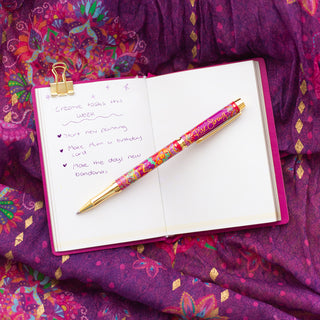 Creative tasks this
week
Start new painting
Make Mum a birthday
card
Make the dogs new
bandanas